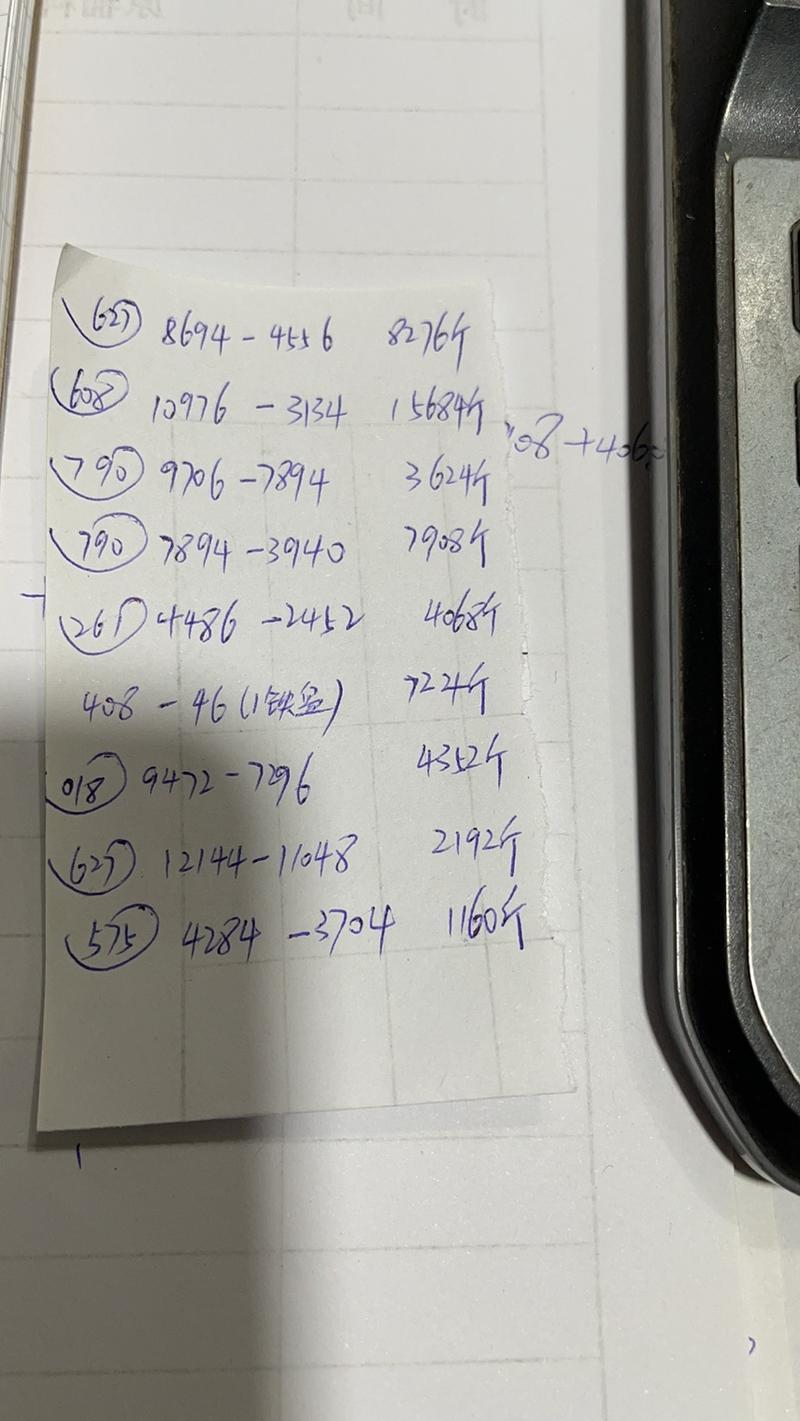 627 8694 - 4556 8276斤
608 10976 - 3134 15684斤
08 + 406
790 9706 - 7894 3624斤
790 7894 - 3940 7908斤
261 4486 - 2452 4068斤
408 - 46 (1铁盆) 724斤
018 9472 - 7296 4352斤
627 12144 - 11048 2192斤
575 4284 - 3704 1160斤